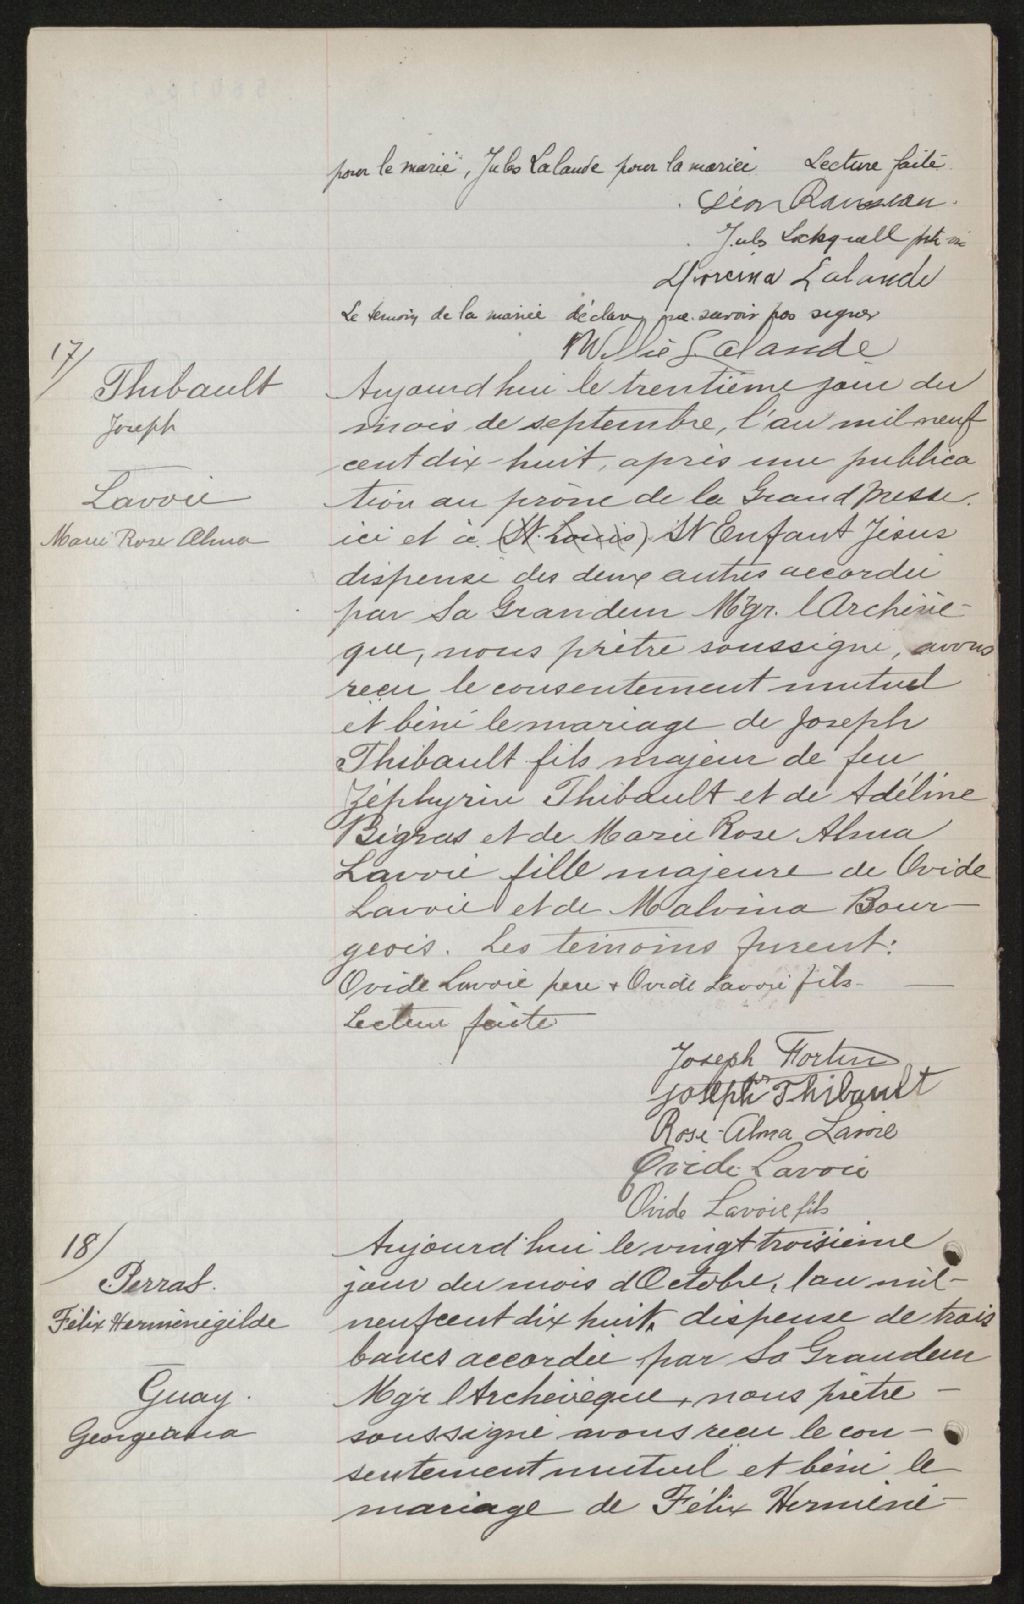 pour le marié, Jules Lalande pour la mariée. Lecture faite.
Léon Rousseau.
Jules Lockquell ptre
Lalande
Le temoin de la mariée déclare ne savoir pas signer
Willie Lalande
17/
Thibault
Joseph
Lavoie
Marie Rose Alma
Aujourd'hui le trentième jour du
mois de septembre, l'an mil neuf
cent dix-huit, après une publica
tion au prône de la Grand Messe.
ici et à (St. Louis) St Enfant Jésus
dispense des deux autres accordée
par Sa Grandeur Mgr. l'Archevê-
que, nous prêtre soussigné, avons
reçu le consentement mutuel
et béni le mariage de Joseph
Thibault fils majeur de feu
Zéphyrin Thibault et de Adéline
Bigras et de Marie Rose Alma
Lavoie fille majeure de Ovide
Lavoie et de Malvina Bour-
geois. Les témoins furent:
Ovide Lavoie père & Ovide Lavoie fils-
Lecture faite
Joseph Fortin
Joseph Thibault
Rose-Alma Lavoie
Ovide Lavoie
Ovide Lavoie fils
18/
Perras.
Félix Herménégilde
Guay.
Georgeanna
Aujourd'hui le vingt troisième
jour du mois d'Octobre, l'an mil-
neuf cent dix huit, dispense de trois
bancs accordée par Sa Grandeur
Mgr l'Archevêque, nous prêtre -
soussigné avons reçu le con-
sentement mutuel et béni le
mariage de Félix Herméné-